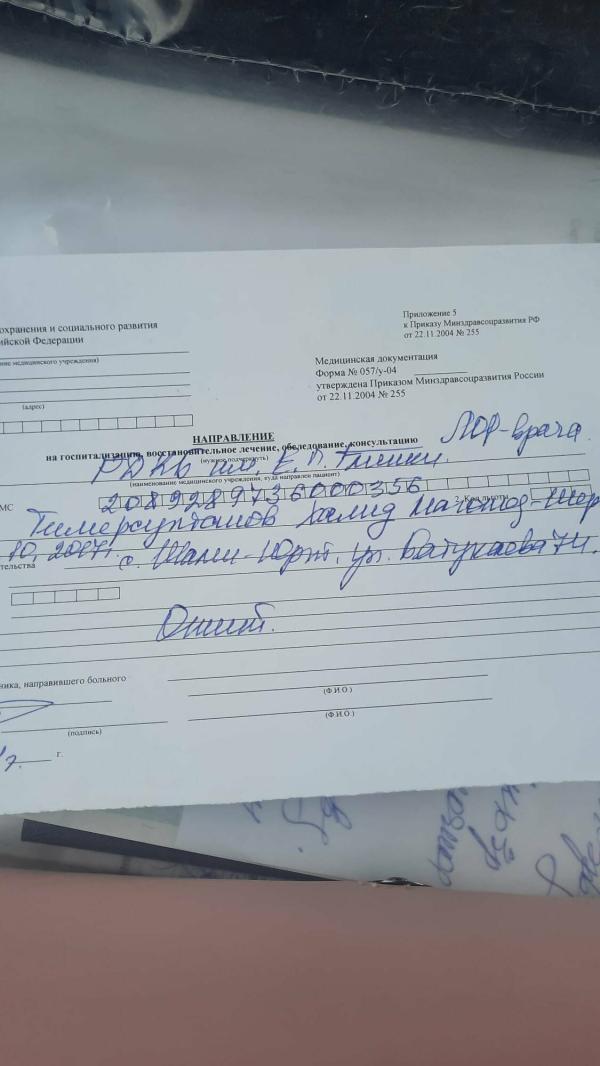 охранения и социального развития
ийской Федерации
ние медицинского учреждения)
(адрес)
Приложение 5
к Приказу Минздравсоцразвития РФ
от 22.11.2004 № 255
Медицинская документация
Форма № 057/у-04
утверждена Приказом Минздравсоцразвития России
от 22.11.2004 № 255
НАПРАВЛЕНИЕ
на госпитализацию, восстановительное лечение, обследование, консультацию ЛОР-врача
(нужное подчеркнуть)
РДКБ им. Е. П. Глинки.
(наименование медицинского учреждения, куда направлен пациент)
МС 2089289736000356 2. Код льготы
Тимерсултанов Халид Магомед-
10, 2007г.
тельства с. Шами-Юрт, ул. Батукаева 74.
Отит.
ника, направившего больного
(Ф.И.О.)
(подпись) (Ф.И.О.)
г.